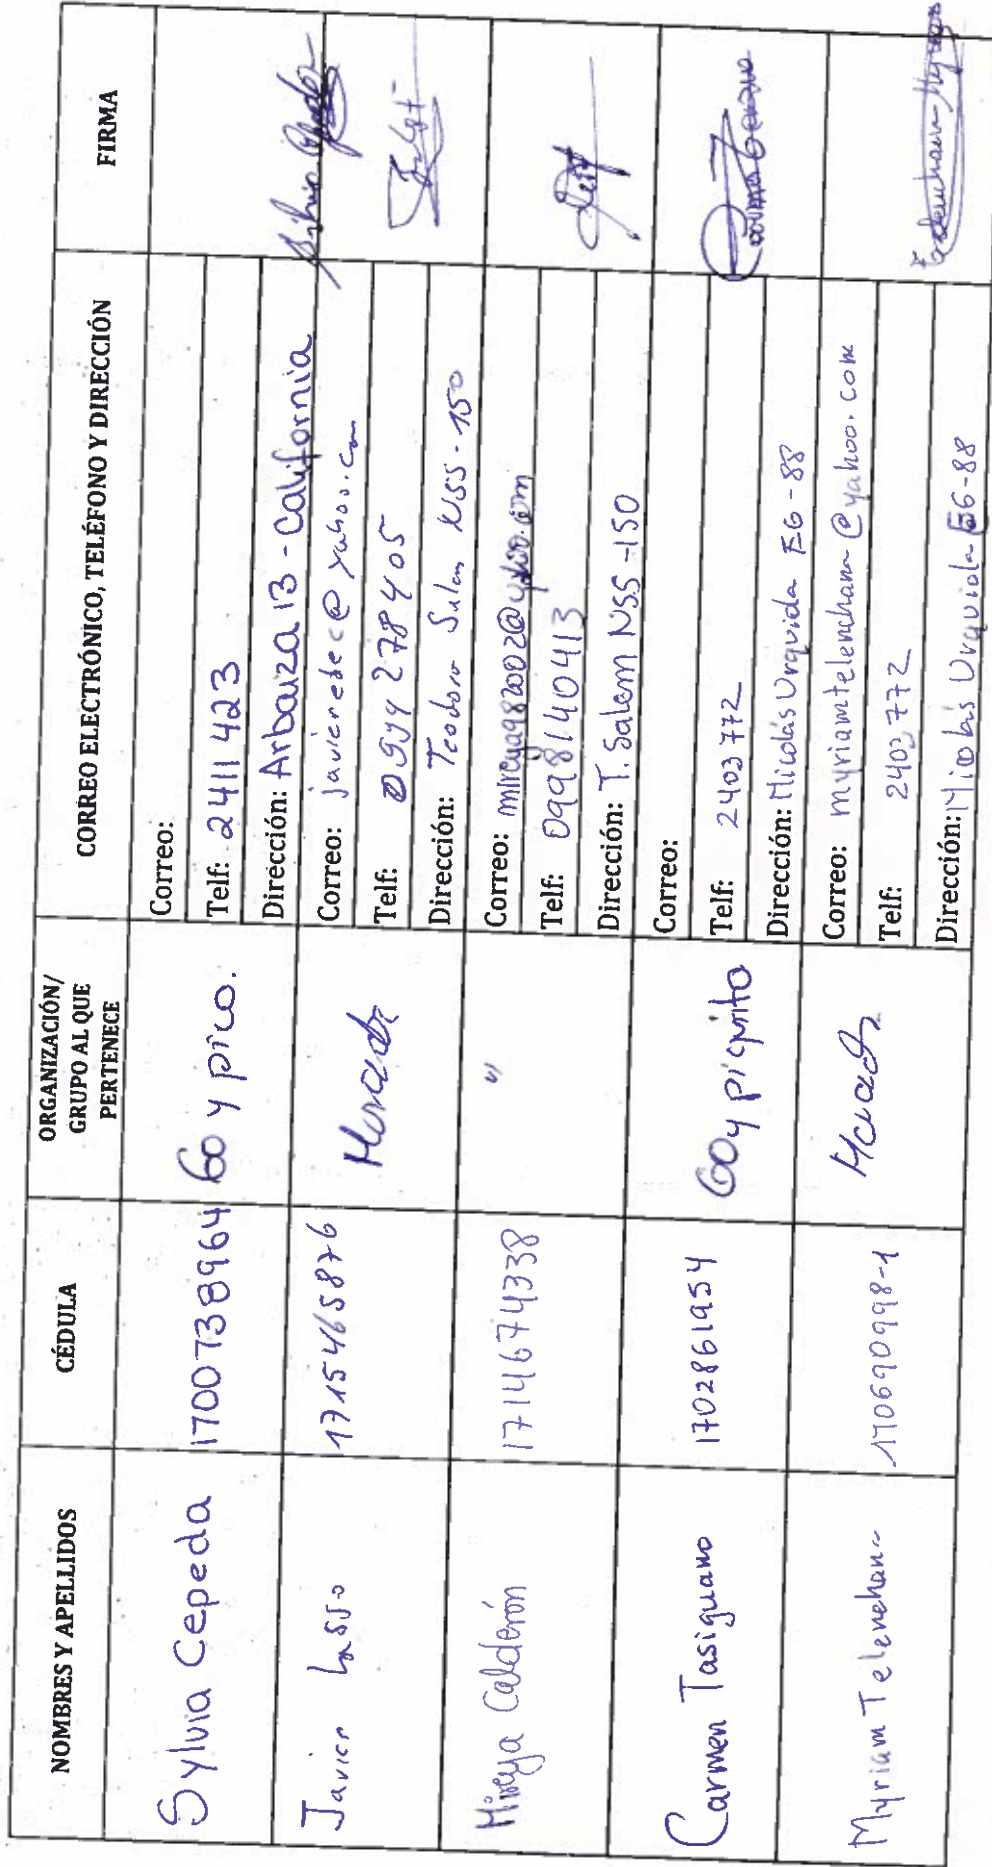 NOMBRES Y APELLIDOS
CÉDULA
ORGANIZACIÓN/
GRUPO AL QUE
PERTENECE
CORREO ELECTRÓNICO, TELÉFONO Y DIRECCIÓN
FIRMA
Sylvia Cepeda
1700738964
60 y pico.
Correo:
Telf: 2411 423
Dirección: Arbaiza 13 - California
Javier Lasso
1715465876
Morador
Correo: javieredec@yahoo.com
Telf: 0999 278405
Dirección: Teodoro Salem N55-150
Mireya Calderón
1714674338
"
Correo: mireya982002@yahoo.com
Telf: 0998140413
Dirección: T. Salem N55-150
Carmen Tasiguano
1702861954
60 y piquito
Correo:
Telf: 2403772
Dirección: Nicolás Urquida E6-88
Myriam Telenchana
170690998-1
Morador
Correo: myriamtelenchana@yahoo.com
Telf: 2403772
Dirección: Nicolás Urquida E6-88